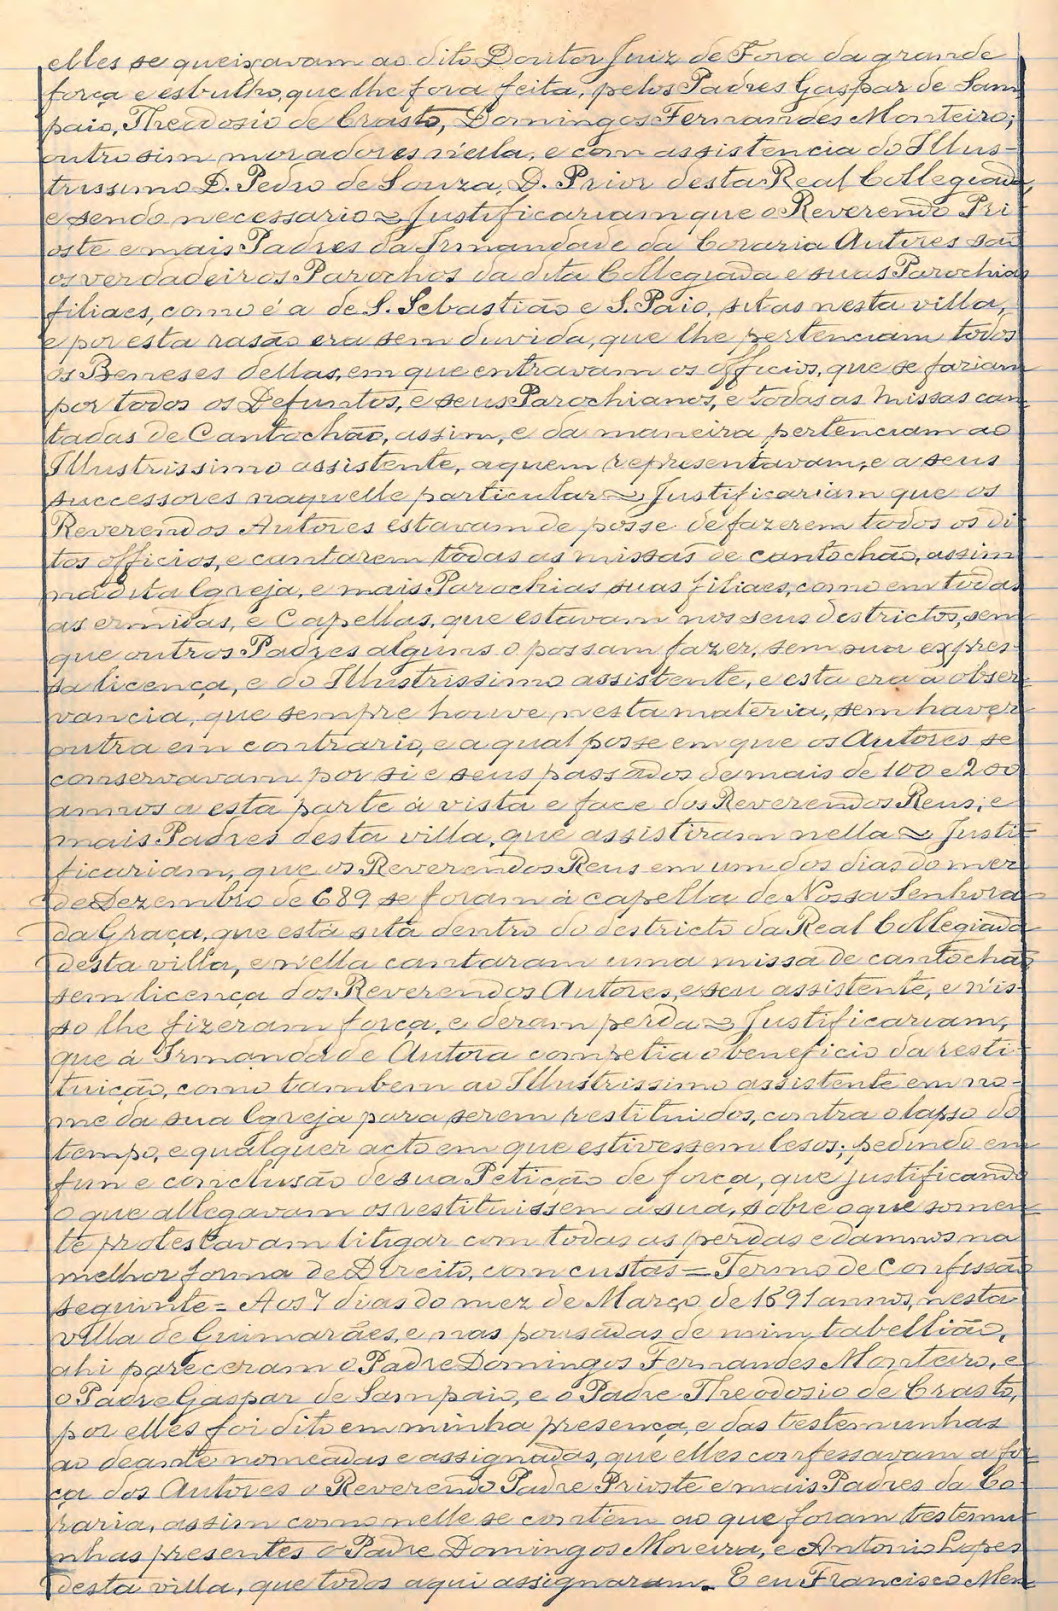 elles se queixavam ao dito Doutor Juiz de Fora da grande
força e esbulho, que lhe fora feita, pelos Padres Gaspar de Sam
paio, Theodosio de Crasto, Domingos Fernandes Monteiro;
outro sim moradores n'ella, e com assistencia do Illus-
trissimo D. Pedro de Souza, D. Prior desta Real Collegiada,
e sendo necessario ~ Justificariam que o Reverendo Pri
oste e mais Padres da Irmandade da Coraria Autores são
os verdadeiros Parochos da dita Collegiada e suas Parochias
filiaes, como é a de S. Sebastião e S. Paio, sitas nesta villa,
e por esta rasão era sem duvida, que lhe pertenciam todos
os Beneses dellas, em que entravam os officios, que se fariam
por todos os Defuntos, e seus Parochianos, e todas as missas can
tadas de Cantochão, assim, e da maneira pertenciam ao
Illustrissimo assistente, a quem representavam, e a seus
successores naquelle particular ~ Justificariam que os
Reverendos Autores estavam de posse de fazerem todos os di
tos officios, e cantarem todas as missas de cantochão, assim
na dita Igreja, e mais Parochias suas filiaes, como em todas
as ermidas, e Capellas, que estavam nos seus destrictos, sem
que outros Padres alguns o possam fazer, sem sua expres-
sa licença, e do Illustrissimo assistente, e esta era a obser
vancia, que sempre houve nesta materia, sem haver
outra em contrario, e a qual posse em que os Autores se
conservavam por si e seus passados de mais de 100 e 200
annos a esta parte á vista e face dos Reverendos Reus; e
mais Padres desta villa, que assistiram nella ~ Justi-
ficariam, que os Reverendos Reus em um dos dias do mez
de Dezembro de 689 se foram á capella de Nossa Senhora
da Graça, que está sita dentro do destricto da Real Collegiada
desta villa, e n'ella cantaram uma missa de cantochão
sem licença dos Reverendos Autores, e seu assistente, e n'is-
so lhe fizeram força, e deram perda ~ Justificariam,
que á Irmandade Autora competia o beneficio da resti-
tuição, como tambem ao Illustrissimo assistente em no-
me da sua Igreja para serem restituidos, contra o lapso do
tempo, e qualquer acto em que estivessem lesos; pedindo em
fim e conclusão de sua Petição de força, que justificando
o que allegavam os restituissem á sua, sobre o que somen-
te protestavam litigar com todas as perdas e damnos na
melhor forma de Direito, com custas = Termo de Confissão
seguinte = Aos 7 dias do mez de Março de 1691 annos, nesta
villa de Guimarães, e nas pousadas de mim tabellião,
ahi pareceram o Padre Domingos Fernandes Monteiro, e
o Padre Gaspar de Sampaio, e o Padre Theodosio de Crasto,
por elles foi dito em minha presença, e das testemunhas
ao deante nomeadas e assignadas, que elles confessavam a for
ça dos Autores o Reverendo Padre Prioste e mais Padres da Co
raria, assim como nelle se contem ao que foram testemu
nhas presentes o Padre Domingos Moreira, e Antonio Lopes
desta villa, que todos aqui assignaram. E eu Francisco Men